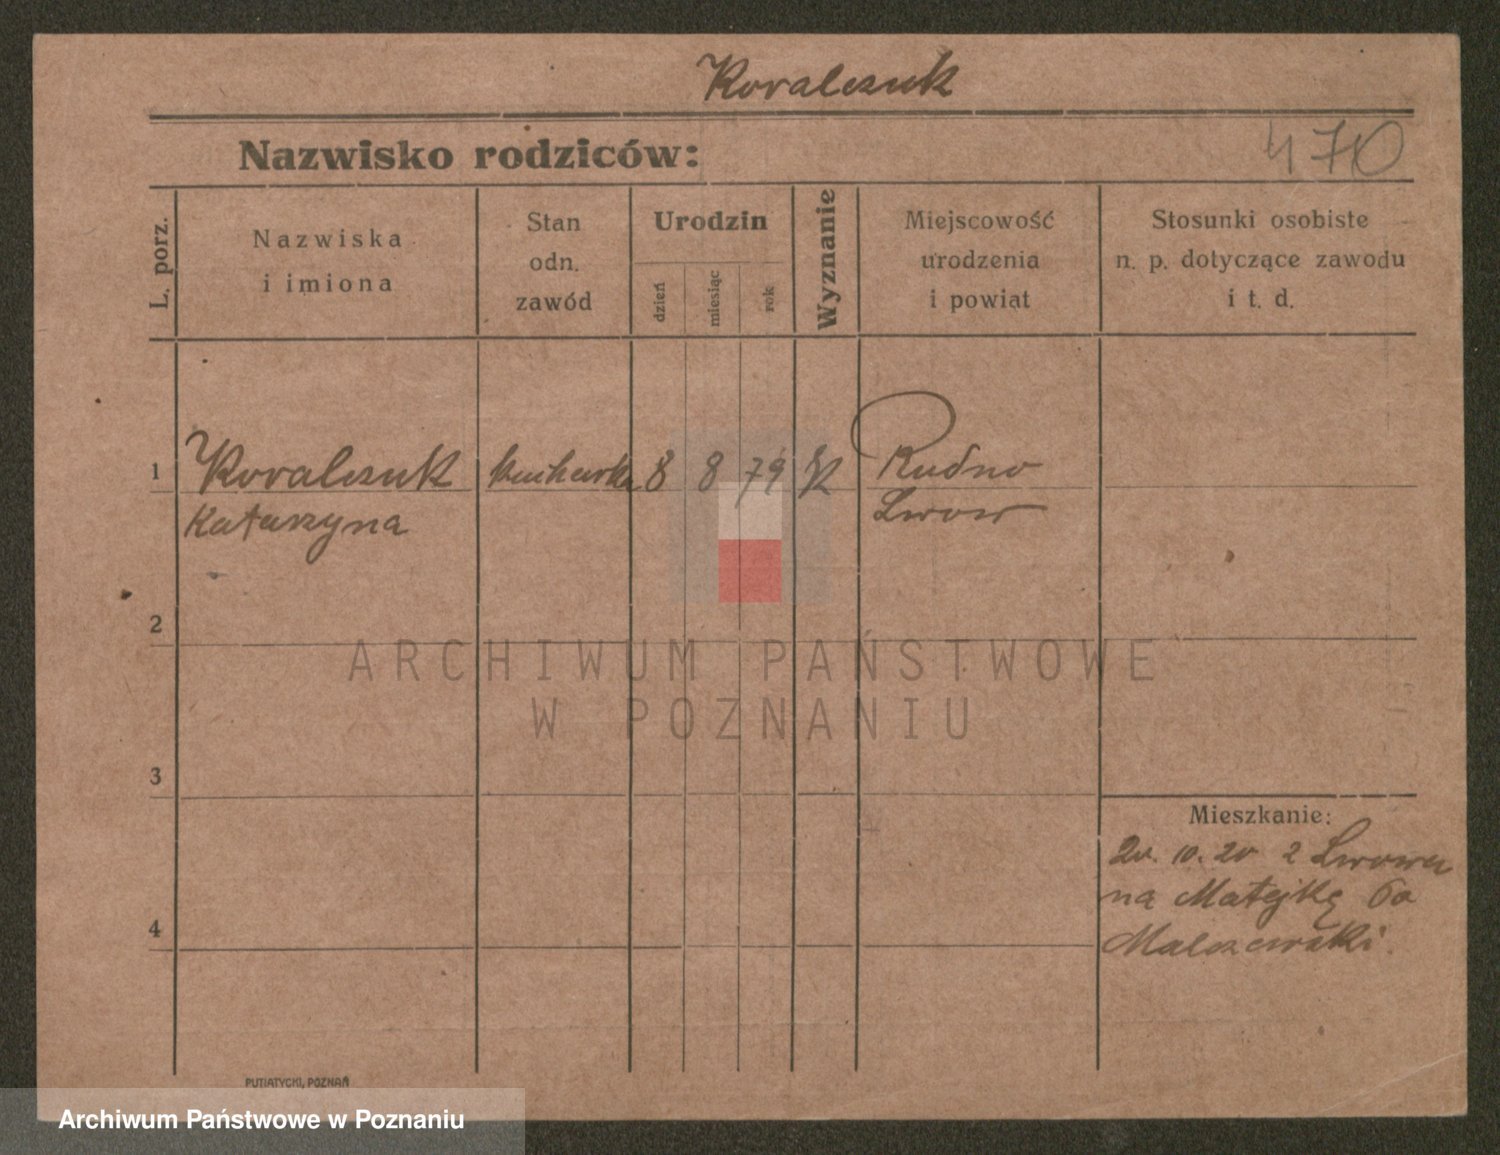 Kovalczuk
Nazwisko rodziców:
470
L. porz.
Nazwiska
i imiona
Stan
odn.
zawód
Urodzin
dzień
miesiąc
rok
Wyznanie
Miejscowość
urodzenia
i powiat
Stosunki osobiste
n. p. dotyczące zawodu
i t. d.
1
Kovalczuk
Katarzyna
kucharka
8
8
79
Rudno
Lwow
2
3
4
Mieszkanie:
20. 10. 20 z Lwowa
na Matejkę 60
Malczewski.
PUTIATYCKI, POZNAŃ
ARCHIWUM PAŃSTWOWE
W POZNANIU
Archiwum Państwowe w Poznaniu